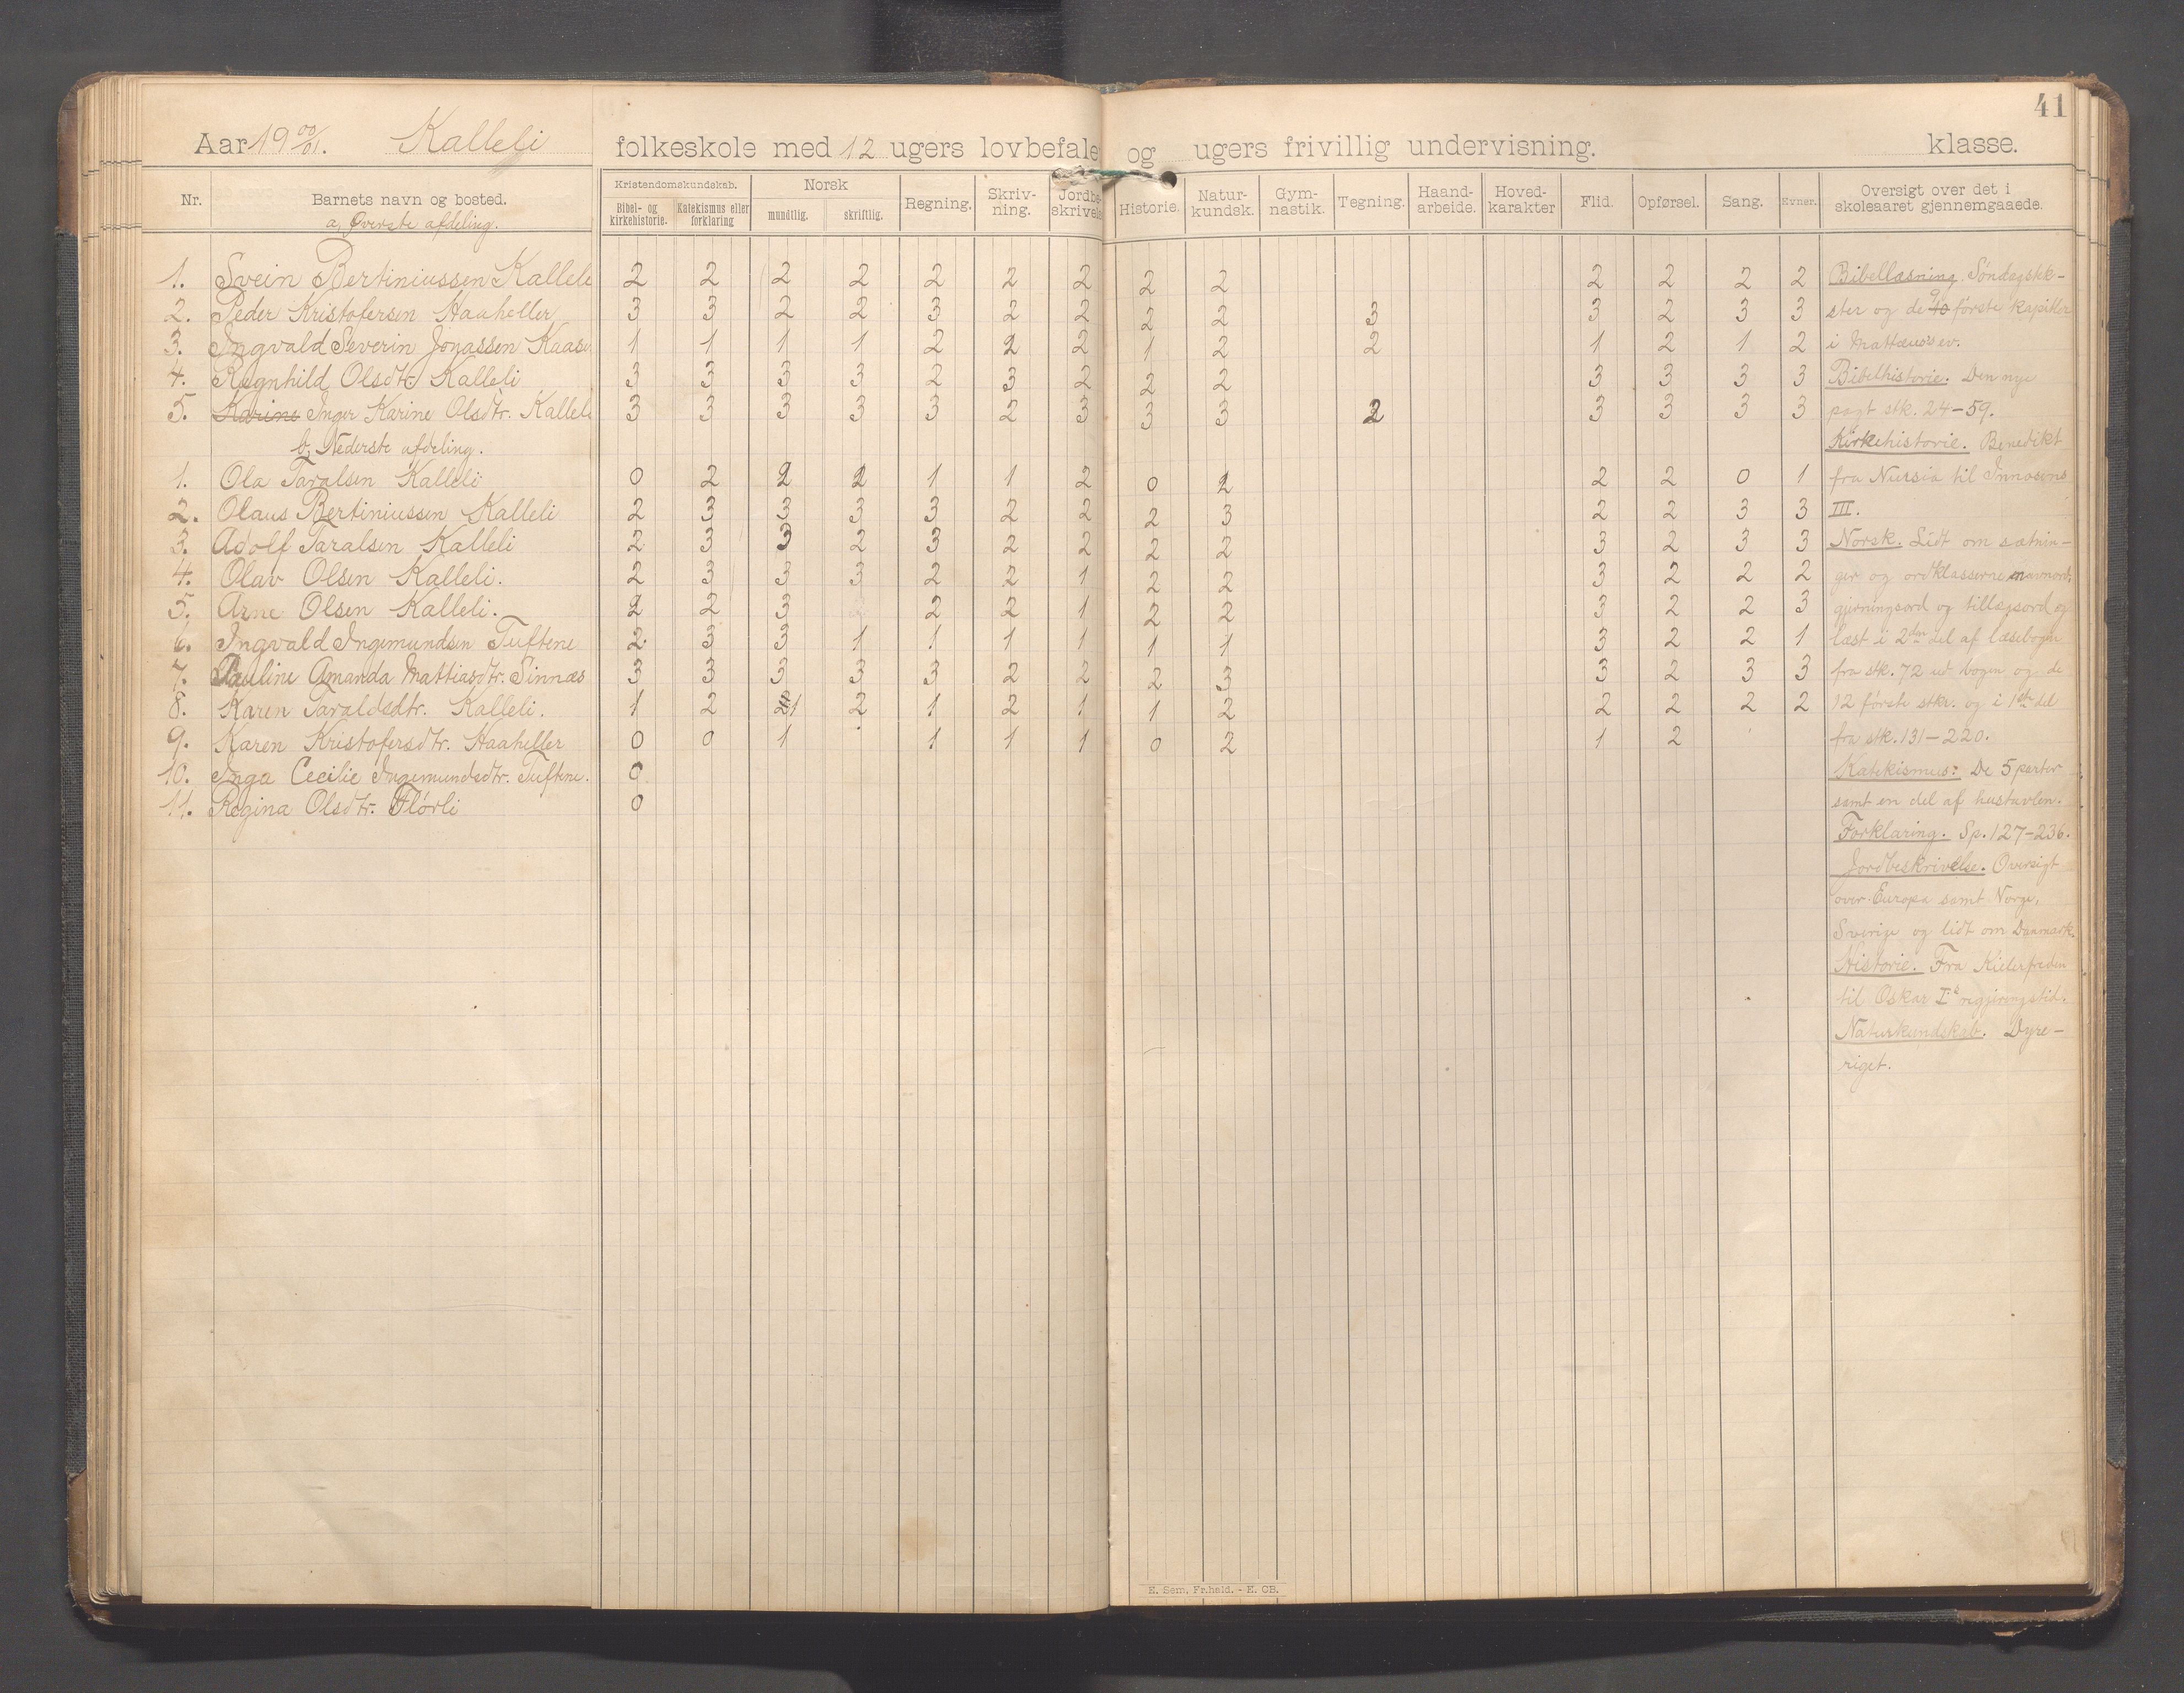 41
Aar 19 00/01. Kalleli folkeskole med 12 ugers lovbefale og ugers frivillig undervisning. klasse.
Nr. Barnets navn og bosted. Kristendomskundskab. Bibel- og kirkehistorie. Katekismus eller forklaring Norsk mundtlig. skriftlig. Regning. Skriv-ning. Jordbe-skrivels Historie. Natur-kundsk. Gym-nastik. Tegning. Haand-arbeide. Hoved-karakter Flid. Opførsel. Sang. Evner. Oversigt over det i skoleaaret gjennemgaaede.
a, Øverste afdeling.
1. Svein Bertiniussen Kalleli 2 2 2 2 2 2 2 2 2 2 2 2 2
2. Peder Kristofersen Haaheller 3 3 2 2 3 2 2 2 2 3 3 2 3 3
3. Ingvald Severin Jonassen Kaasen 1 1 1 1 2 2 2 1 2 2 1 2 1 2
4. Ragnhild Olsdtr. Kalleli 3 3 3 3 2 3 2 2 2 3 3 3 3
5. Karine Inger Karine Olsdtr. Kalleli 3 3 3 3 3 2 3 3 3 2 3 3 3 3
b, Nederste afdeling.
1. Ola Taralsen Kalleli 0 2 2 2 1 1 2 0 2 2 2 0 1
2. Olaus Bertiniussen Kalleli 2 3 3 3 3 2 2 2 3 2 2 3 3
3. Adolf Taralsen Kalleli 2 3 3 2 3 2 2 2 2 3 2 3 3
4. Olav Olsen Kalleli. 2 3 3 3 2 2 1 2 2 3 2 2 2
5. Arne Olsen Kalleli. 2 2 3 2 2 1 2 2 3 2 2 3
6. Ingvald Ingemundsen Tuftene 2 3 3 1 1 1 1 1 1 3 2 2 1
7. Pauline Amanda Mattiasdtr. Sinnæs 3 3 3 3 3 2 2 2 3 3 2 3 3
8. Karen Taraldsdtr. Kalleli. 1 2 1 2 1 2 1 1 2 2 2 2 2
9. Karen Kristofersdtr. Haaheller 0 0 1 1 1 1 0 2 1 2
10. Inga Cecilie Ingemundsdtr. Tuftene. 0
11. Regina Olsdtr. Flørli 0
Bibellæsning. Søndagstek-
ster og de 9 40 første kapitler
i Mattæus's ev.
Bibelhistorie. Den nye
pagt stk. 24-59.
Kirkehistorie. Benedikt
fra Nursia til Innosens
III.
Norsk. Lidt om sætnin-
ger og ordklasserne navnord,
gjerningsord og tillægsord og
læst i 2den del af læsebogen
fra stk. 72 ud bogen og de
12 første stkr. og i 1ste del
fra stk. 131-220.
Katekismus: De 5 parter
samt en del af hustavlen.
Forklaring. Sp. 127-236.
Jordbeskrivelse. Oversigt
over Europa samt Norge,
Sverige og lidt om Danmark.
Historie. Fra Kielerfreden
til Oskar I's regjeringstid.
Naturkundskab. Dyre-
riget.
E. Sem, Fr.hald. - E. CB.